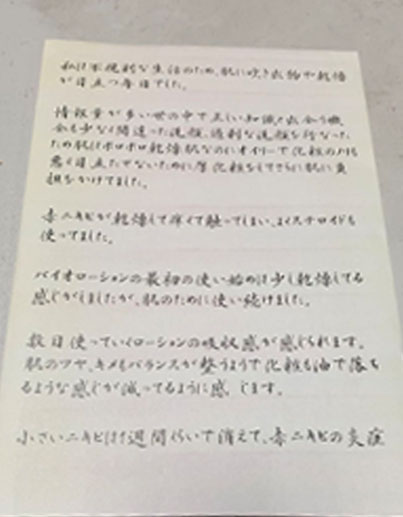 私は不規則な生活のため、肌に吹き出物や乾燥
が目立つ毎日でした。
情報量が多い世の中で正しい知識と出会う機
会も少なく間違った洗顔、過剰な洗顔を行なった
ため肌はボロボロ乾燥肌なのにオイリーで化粧のノリも
悪く目立たせないために厚化粧をしてさらに肌に負
担をかけてました。
赤ニキビが乾燥して痒くて触ってしまい、よくステロイドも
使ってました。
バイオローションの最初の使い始めは少し乾燥してる
感じがしましたが、肌のために使い続けました。
数日使っていくローションの吸収感が感じられます。
肌のツヤ、キメもバランスが整うようで化粧も油で落ち
るような感じが減ってるように感じます。
小さいニキビは1週間くらいで消えて、赤ニキビの炎症